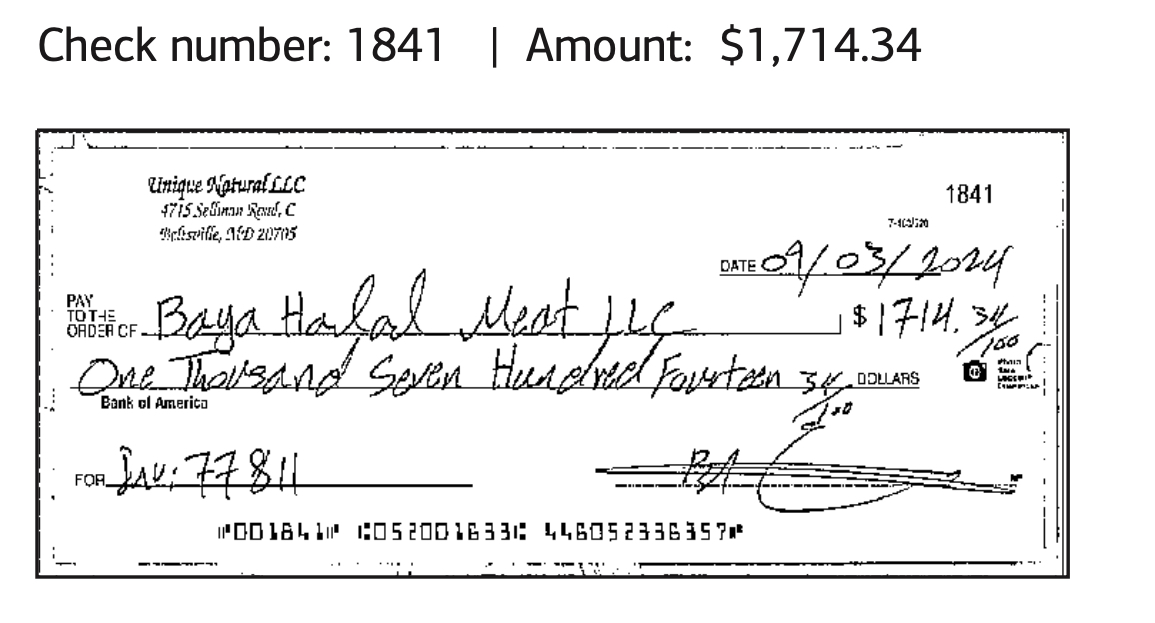 Check number: 1841 | Amount: $1,714.34
Unique Natural LLC
4715 Sellman Road, C
Beltsville, MD 20705
1841
DATE 09/03/2024
PAY TO THE ORDER OF Baya Halal Meat LLC $1714.34/100
One Thousand Seven Hundred Fourteen 34/100 DOLLARS
Bank of America
FOR Inv: 77811
⑈001841⑈ ⑆052001633⑆ 446052336357⑈